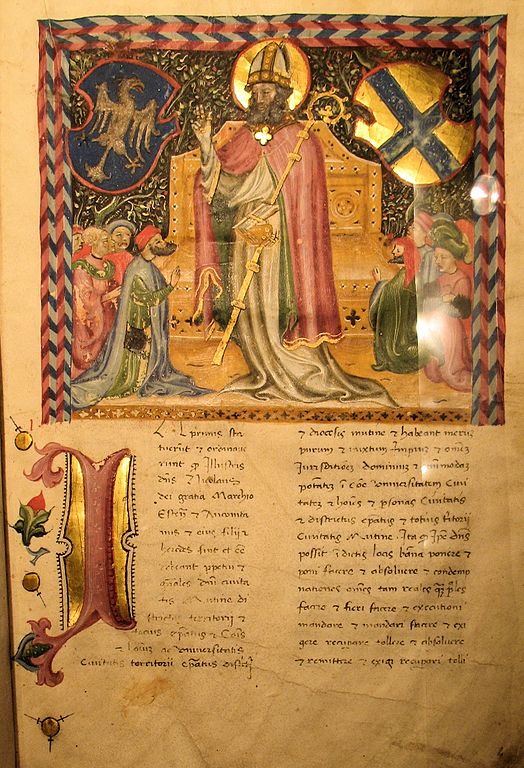 N primis sta
tuerut et ordinaue
runt ꝙ Illustris
dns Nicolaus
dei gratia Marchio
Esten ⁊ Anconita
nus ⁊ eius filij ⁊
heredes sint et ee
debeant ppetui ⁊
gnales dni ciuita
tis Mutine di
strictus territorij ⁊
⁊ ac vniuersitatis
Ciuitatis territorij epatus
⁊ diocesis mutine ⁊ habeant meruz
purum ⁊ mixtum Imperiuz ⁊ omez
Jurisdictioez dominiuz ⁊ omimodaz
potatez ⁊ coe vniuersitatem Ciui
tatez ⁊ hoies ⁊ psonas Ciuitatis
⁊ districtus epatus ⁊ totius territorij
Ciuitatis Mutine Ita ꝙ ipe dns
possit in dictis locis bana ponere ⁊
poni facere ⁊ absoluere ⁊ condemp
nationes omes tam reales qz psoles
facere ⁊ fieri facere ⁊ executioni
mandare ⁊ mandari facere ⁊ exi
gere recuperare tollere ⁊ absoluere
⁊ remittere ⁊ exigi recuperari tolli